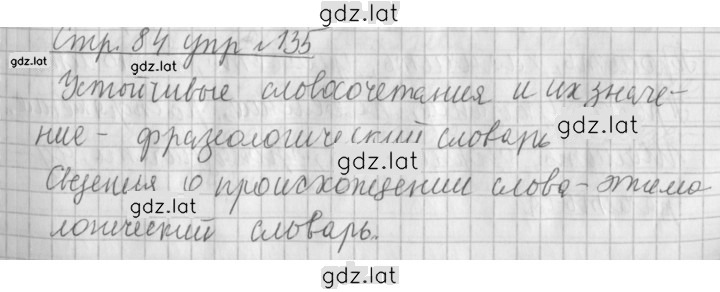 gdz.lat
Стр. 84 упр № 135
gdz.lat
gdz.lat
Устойчивые словосочетания и их значе-
ние - фразеологический словарь
gdz.lat
gdz.lat
Сведения о происхождении слова - этимо
gdz.lat
логический словарь.
gdz.lat